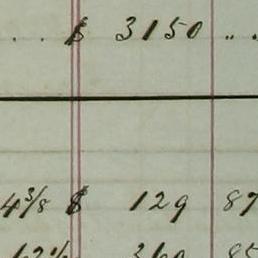 . . $ 3150 " .
4 3/8 $ 129 87
62½ 360 85